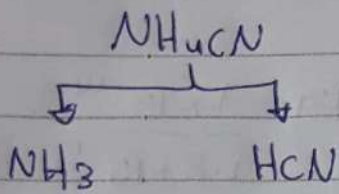 NH4CN
NH3 HCN